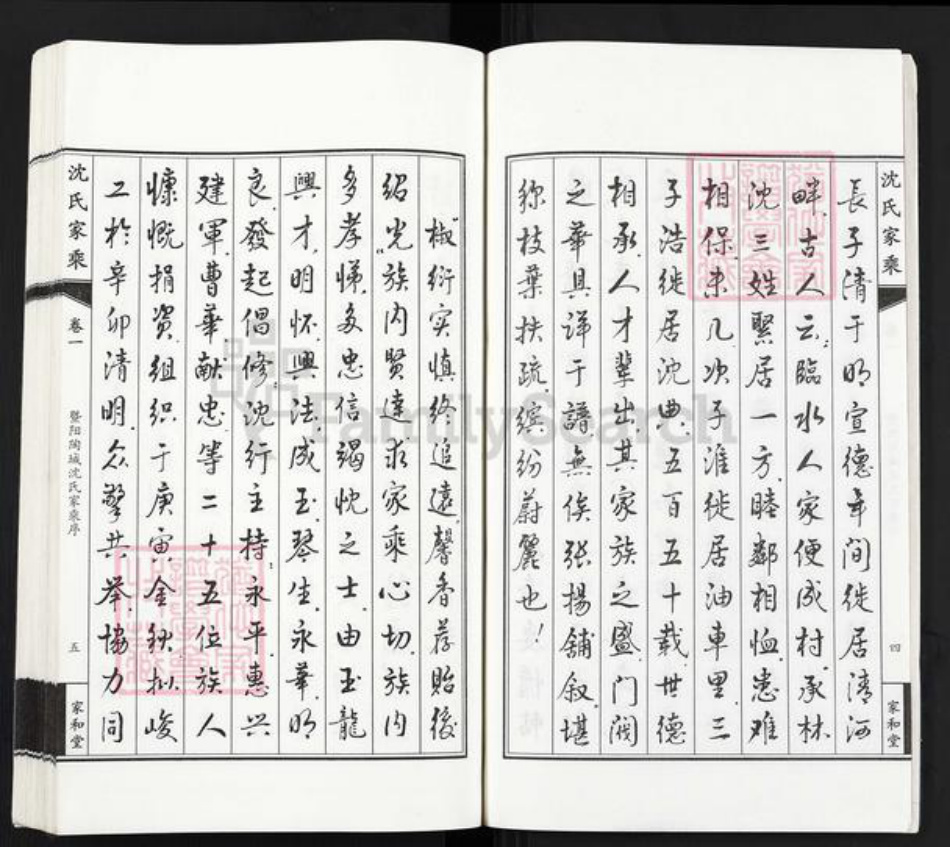 沈氏家乘
四
家和堂
長子清于明宣德年间徙居清河
畔.古人云:臨水人家便成村.承林
沈三姓聚居一方.睦鄰相恤.患难
相保.未几次子淮徙居油車里.三
子浩徙居沈典.五百五十載.世德
相承.人才輩出.其家族之盛.门阀
之華具详于譜.無俟张揚舖叙.堪
称枝葉扶疏.缤纷蔚麗也!
椒衍实慎終追遠.馨香荐貽後
绍光.族内賢達求家乘心切.族内
多孝悌.多忠信竭忱之士.由玉龍
興才.明怀.興法成玉.琴生.永華.明
良.發起倡修.沈行主持.永平.惠兴
建軍.曹華献忠.等二十五位族人
慷慨捐资.组织于庚寅金秋.拟峻
工於辛卯清明.众擎共举.協力同
沈氏家乘
卷一
暨阳陶城沈氏家乘序
五
家和堂
FamilySearch